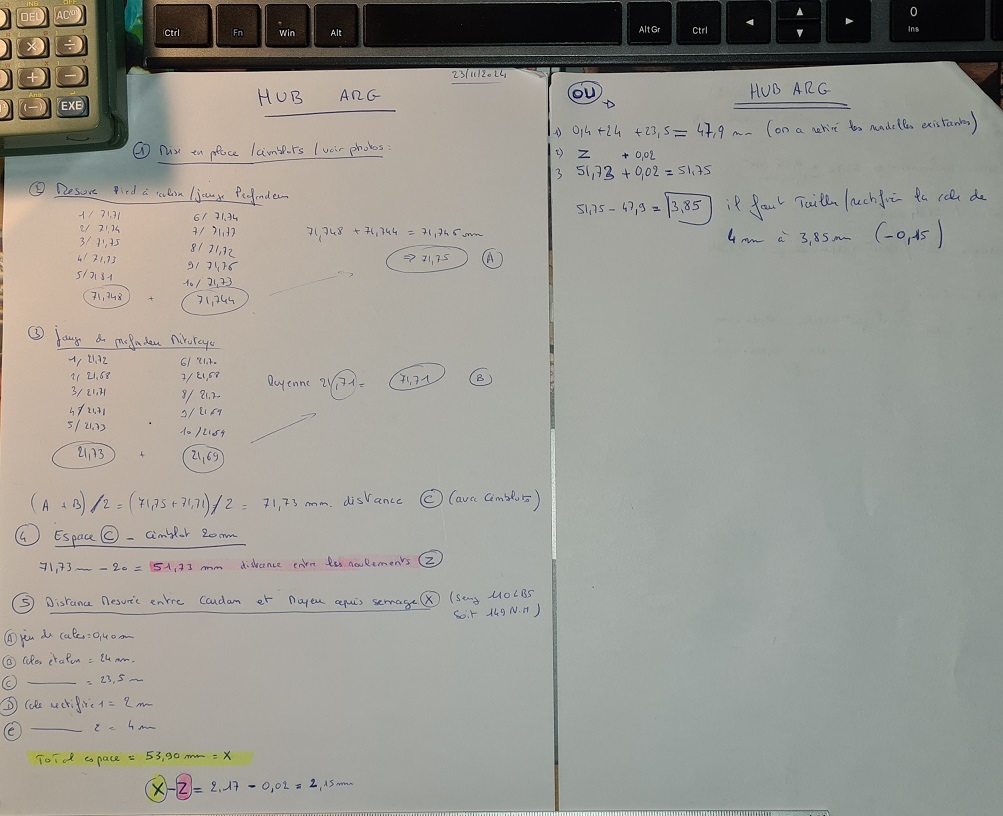 DEL
AC
×
÷
+
−
(−)
EXE
Ctrl
Fn
Win
Alt
AltGr
Ctrl
0
Ins
23/11/2024
HUB ARG
① Mise en place / cimblots / voir photos :
② Mesure Pied à coulisse / jauge Profondeur
1/ 71,71 6/ 71,74
2/ 71,74 7/ 71,77
3/ 71,75 8/ 71,72
4/ 71,73 9/ 71,76
5/ 71,81 10/ 71,73
71,748 + 71,744
71,748 + 71,744 = 71,746 mm
⇒ 71,75 Ⓐ
③ jauge de profondeur Mitutoyo
1/ 21,72 6/ 21,70
2/ 21,68 7/ 21,68
3/ 21,71 8/ 21,70
4/ 21,71 9/ 21,69
5/ 21,73 10/ 21,69
21,73 + 21,69
Moyenne 21,71 = 71,71 Ⓑ
(A + B) /2 = (71,75 + 71,71) /2 = 71,73 mm. distance Ⓒ (avec cimblots)
④ Espace Ⓒ - cimblot 20mm
71,73 mm - 20 = 51,73 mm distance entre les roulements Ⓩ
⑤ Distance Mesurée entre Cardan et Moyeu après serrage Ⓧ (Serrage 110 LBS
soit 149 N.M)
Ⓐ jeu de cales = 0,40 mm
Ⓑ Cales étalon = 24 mm.
Ⓒ —— = 23,5 mm
Ⓓ Cale rectifiée 1 = 2 mm
Ⓔ —— 2 = 4 mm
Total espace = 53,90 mm = X
X - Z = 2,17 - 0,02 = 2,15 mm
OU
HUB ARG
1) 0,4 + 24 + 23,5 = 47,9 mm (on a retiré les rondelles existantes)
2) Z + 0,02
3 51,73 + 0,02 = 51,75
51,75 - 47,9 = 3,85 il faut Tailler / rectifier la cale de
4 mm à 3,85 mm (-0,15)